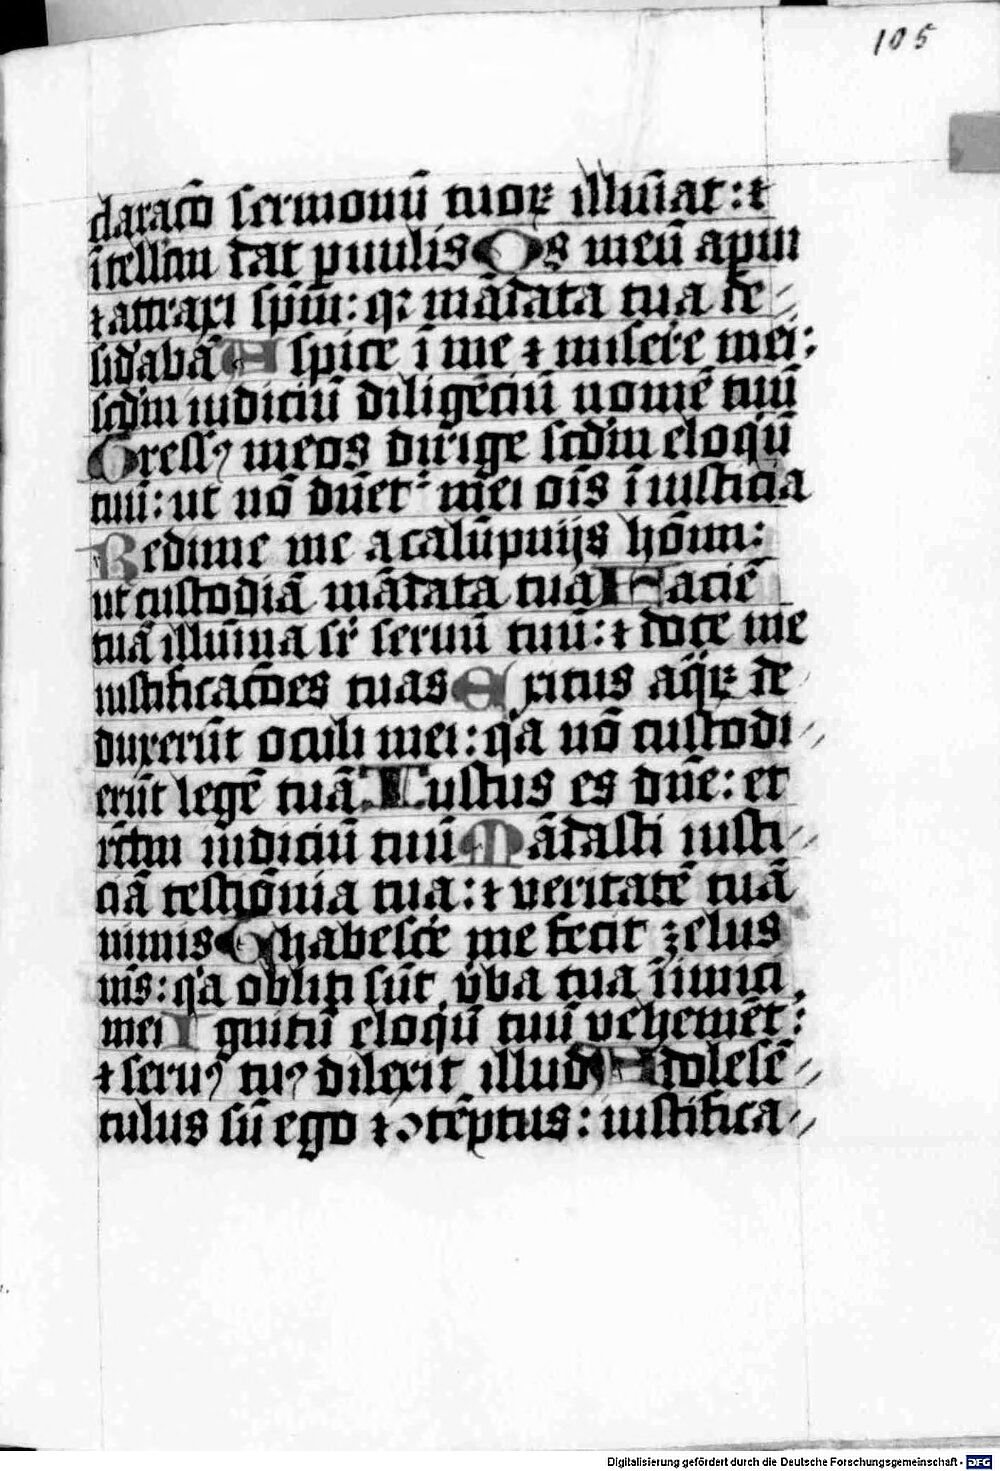 105
claraco̅ sermonu̅ tuoꝝ illu̅iat : ⁊
i̅tellm̅ dat ꝑuulis Os meu̅ aperui
⁊ attraxi spm̅ : qꝛ ma̅data tua de⸗
sid'aba̅ Aspice i̅ me ⁊ miserͤe mei :
scdm̅ iudiciu̅ dilige̅ciu̅ nome̅ tuu̅
Gressꝰ meos dirige scdm̅ eloqu̅
tuu̅ : ut no̅ du̅et᷑ mei ois̅ i̅iusticia
Redime me a calu̅pnijs ho̅im :
ut custodia̅ ma̅data tua Facie̅
tua̅ illu̅ina sr̅ seruu̅ tuu̅ : ⁊ doce me
iustificaco̅es tuas Exitus aqͣꝝ de
duxeru̅t oculi mei : qͥa no̅ custodi⸗
eru̅t lege̅ tua̅ Iustus es dn̅e : et
rc̅tm iudiciu̅ tuu̅ Ma̅dasti iusti⸗
cia̅ testio̅nia tua : ⁊ veritate̅ tua̅
nimis Thabesceͤ me fecit zelus
ms̅ : qͥa obliti su̅t v̾ba tua i̅imici
mei Ignitu̅ eloqu̅ tuu̅ veheme̅t :
⁊ seruꝰ tuꝰ dilexit illud Adolesce̅⸗
tulus su̅ ego ⁊ ꝯte̅ptus : iustifica⸗
Digitalisierung gefördert durch die Deutsche Forschungsgemeinschaft - DFG